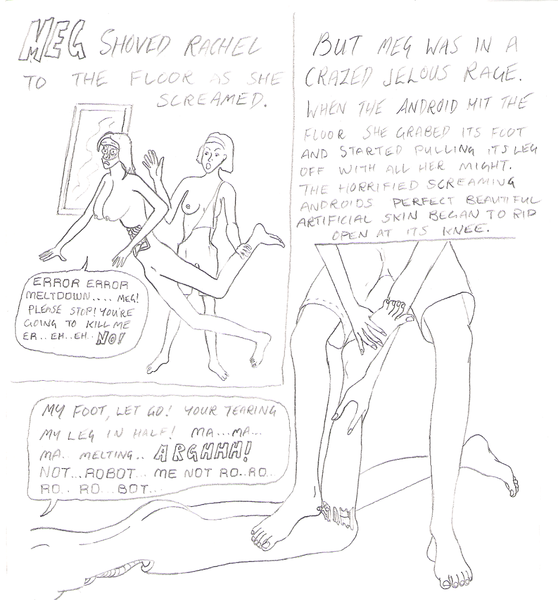 MEG SHOVED RACHEL
TO THE FLOOR AS SHE
SCREAMED.
ERROR ERROR
MELTDOWN.... MEG!
PLEASE STOP! YOU'RE
GOING TO KILL ME
ER.. EH.. EH.. NO!
BUT MEG WAS IN A
CRAZED JELOUS RAGE.
WHEN THE ANDROID HIT THE
FLOOR SHE GRABED ITS FOOT
AND STARTED PULLING ITS LEG
OFF WITH ALL HER MIGHT.
THE HORRIFIED SCREAMING
ANDROIDS PERFECT BEAUTIFUL
ARTIFICIAL SKIN BEGAN TO RIP
OPEN AT ITS KNEE.
MY FOOT, LET GO! YOUR TEARING
MY LEG IN HALF! MA...MA...
MA.. MELTING.. ARGHHH!
NOT...ROBOT... ME NOT RO..RO..
RO.. RO... BOT..